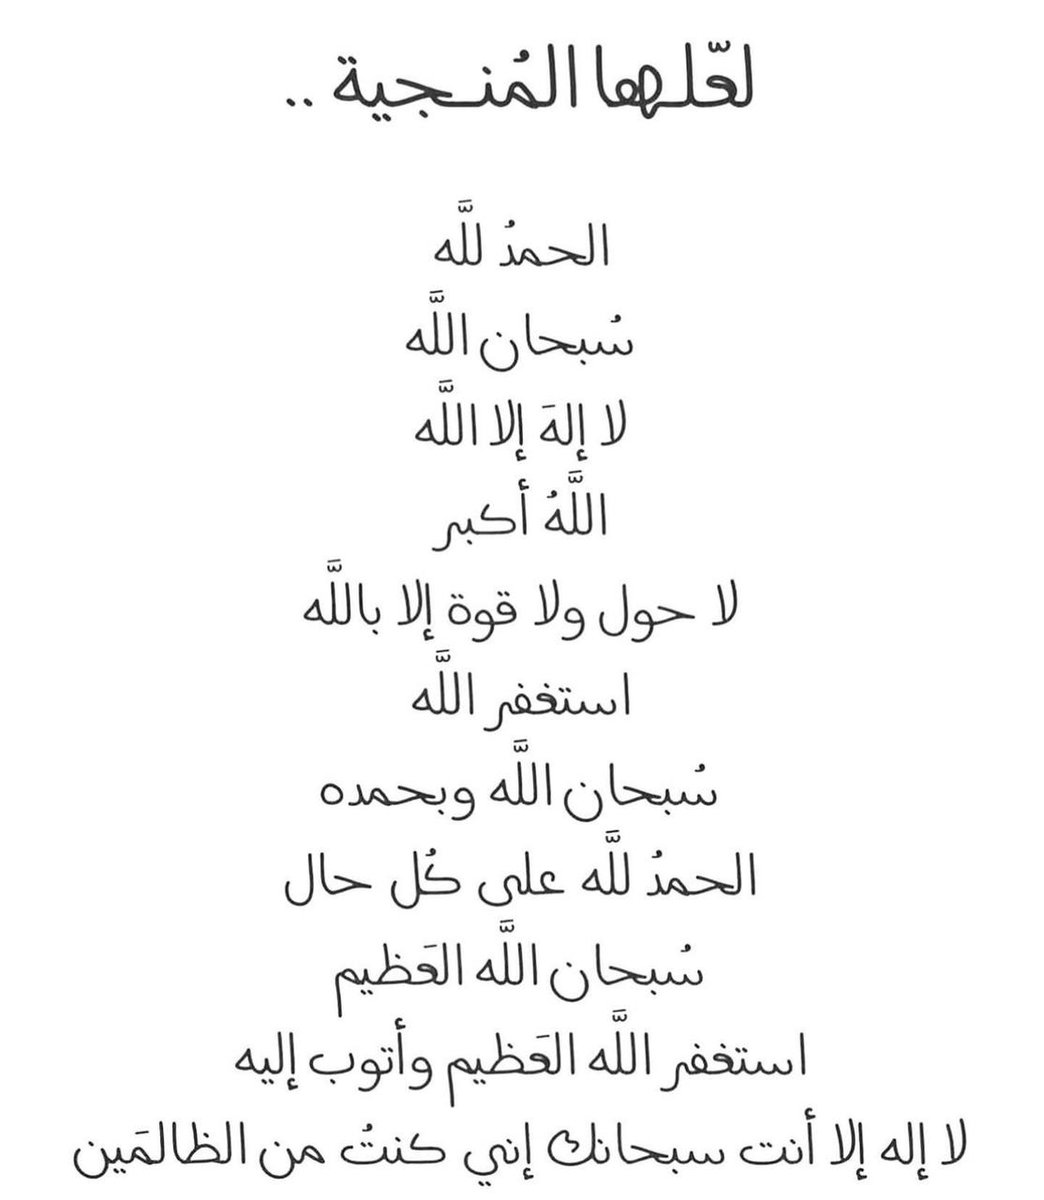 لعّلها المُنـجية ..
الحمدُ للَّه
سُبحان اللَّه
لا إلهَ إلا اللَّه
اللَّهُ أكبر
لا حول ولا قوة إلا باللَّه
استغفر اللَّه
سُبحان اللَّه وبحمده
الحمدُ للَّه على كُل حال
سُبحان اللَّه العَظيم
استغفر اللَّه العَظيم وأتوب إليه
لا إله إلا أنت سبحانك إني كنتُ من الظالمَين